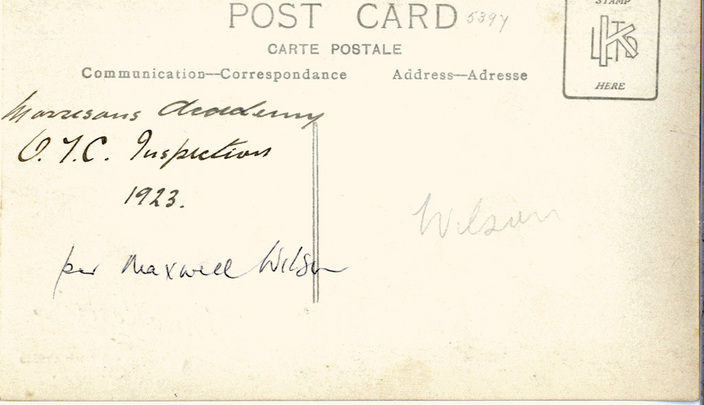 POST CARD 5397
CARTE POSTALE
STAMP
HERE
Communication—Correspondance Address—Adresse
Morrisons Academy
O.T.C. Inspection
1923.
Wilson
per Maxwell Wilson